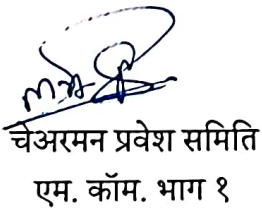 चेअरमन प्रवेश समिति
एम. कॉम. भाग १